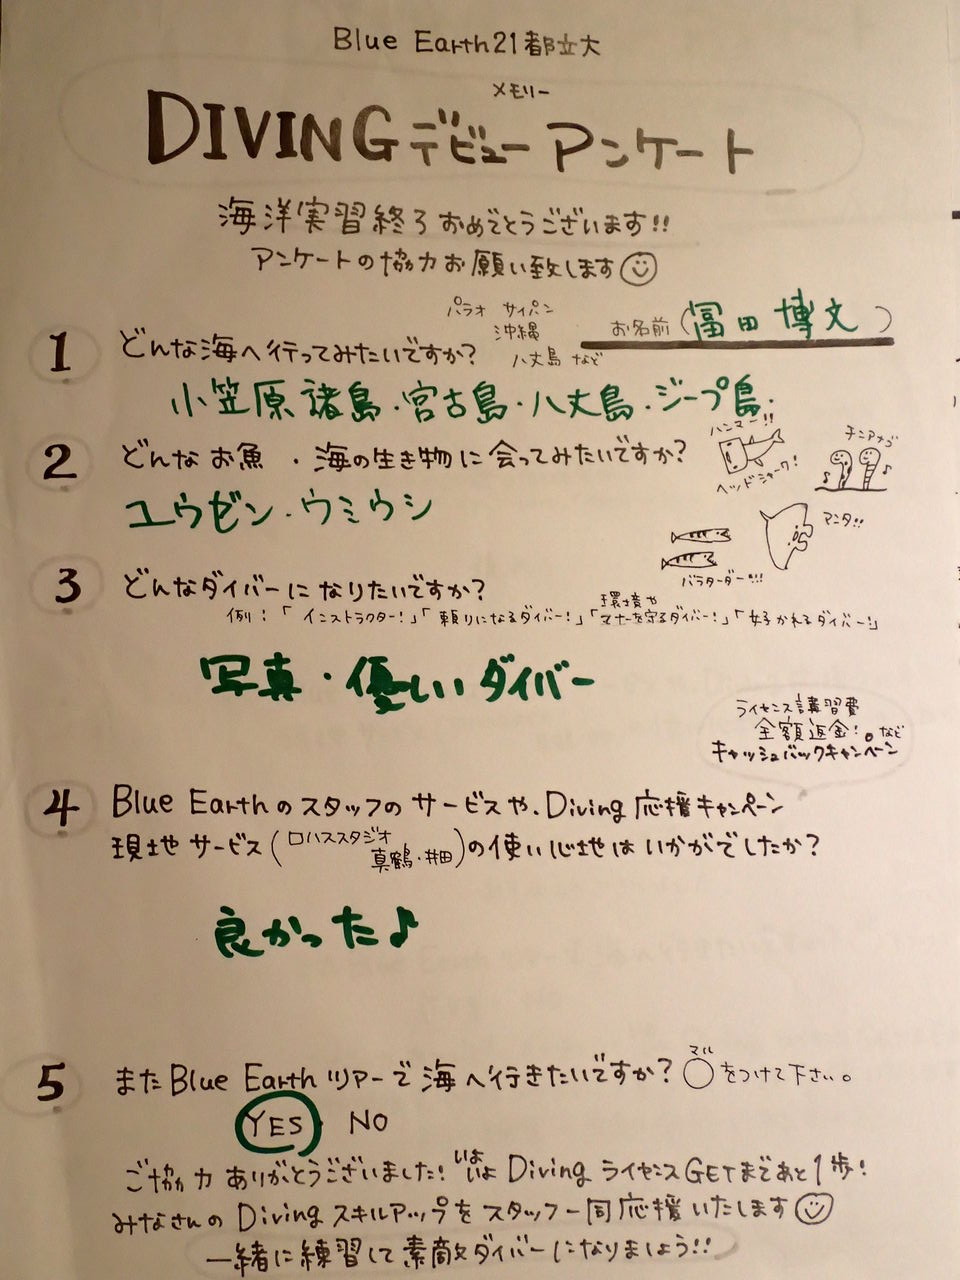 Blue Earth21都立大
メモリー
DIVINGデビューアンケート
海洋実習終了おめでとうございます!!
アンケートの協力お願い致します
お名前(冨田 博文)
1 どんな海へ行ってみたいですか?
パラオ サイパン
沖縄
八丈島 など
小笠原諸島・宮古島・八丈島・ジープ島.
2 どんなお魚・海の生き物に会ってみたいですか?
ハンマー!!
ヘッドシャーク!
チンアナゴ
ユウゼン・ウミウシ
マンタ!!
バラクーダー!!!
3 どんなダイバーになりたいですか?
例:「インストラクター!」「頼りになるダイバー!」「環境やマナーを守るダイバー!」「好かれるダイバー!」
写真・優しいダイバー
ライセンス講習費
全額返金!。など
キャッシュバックキャンペーン
4 Blue Earthのスタッフのサービスや、Diving応援キャンペーン
現地サービス(ロハススタジオ
真鶴・井田)の使い心地はいかがでしたか?
良かった♪
5 またBlue Earthツアーで海へ行きたいですか?○をつけて下さい。
マル
YES NO
ご協力ありがとうございました!いよいよDivingライセンスGETまであと1歩!
みなさんのDivingスキルアップをスタッフ一同応援いたします
一緒に練習して素敵ダイバーになりましょう!!